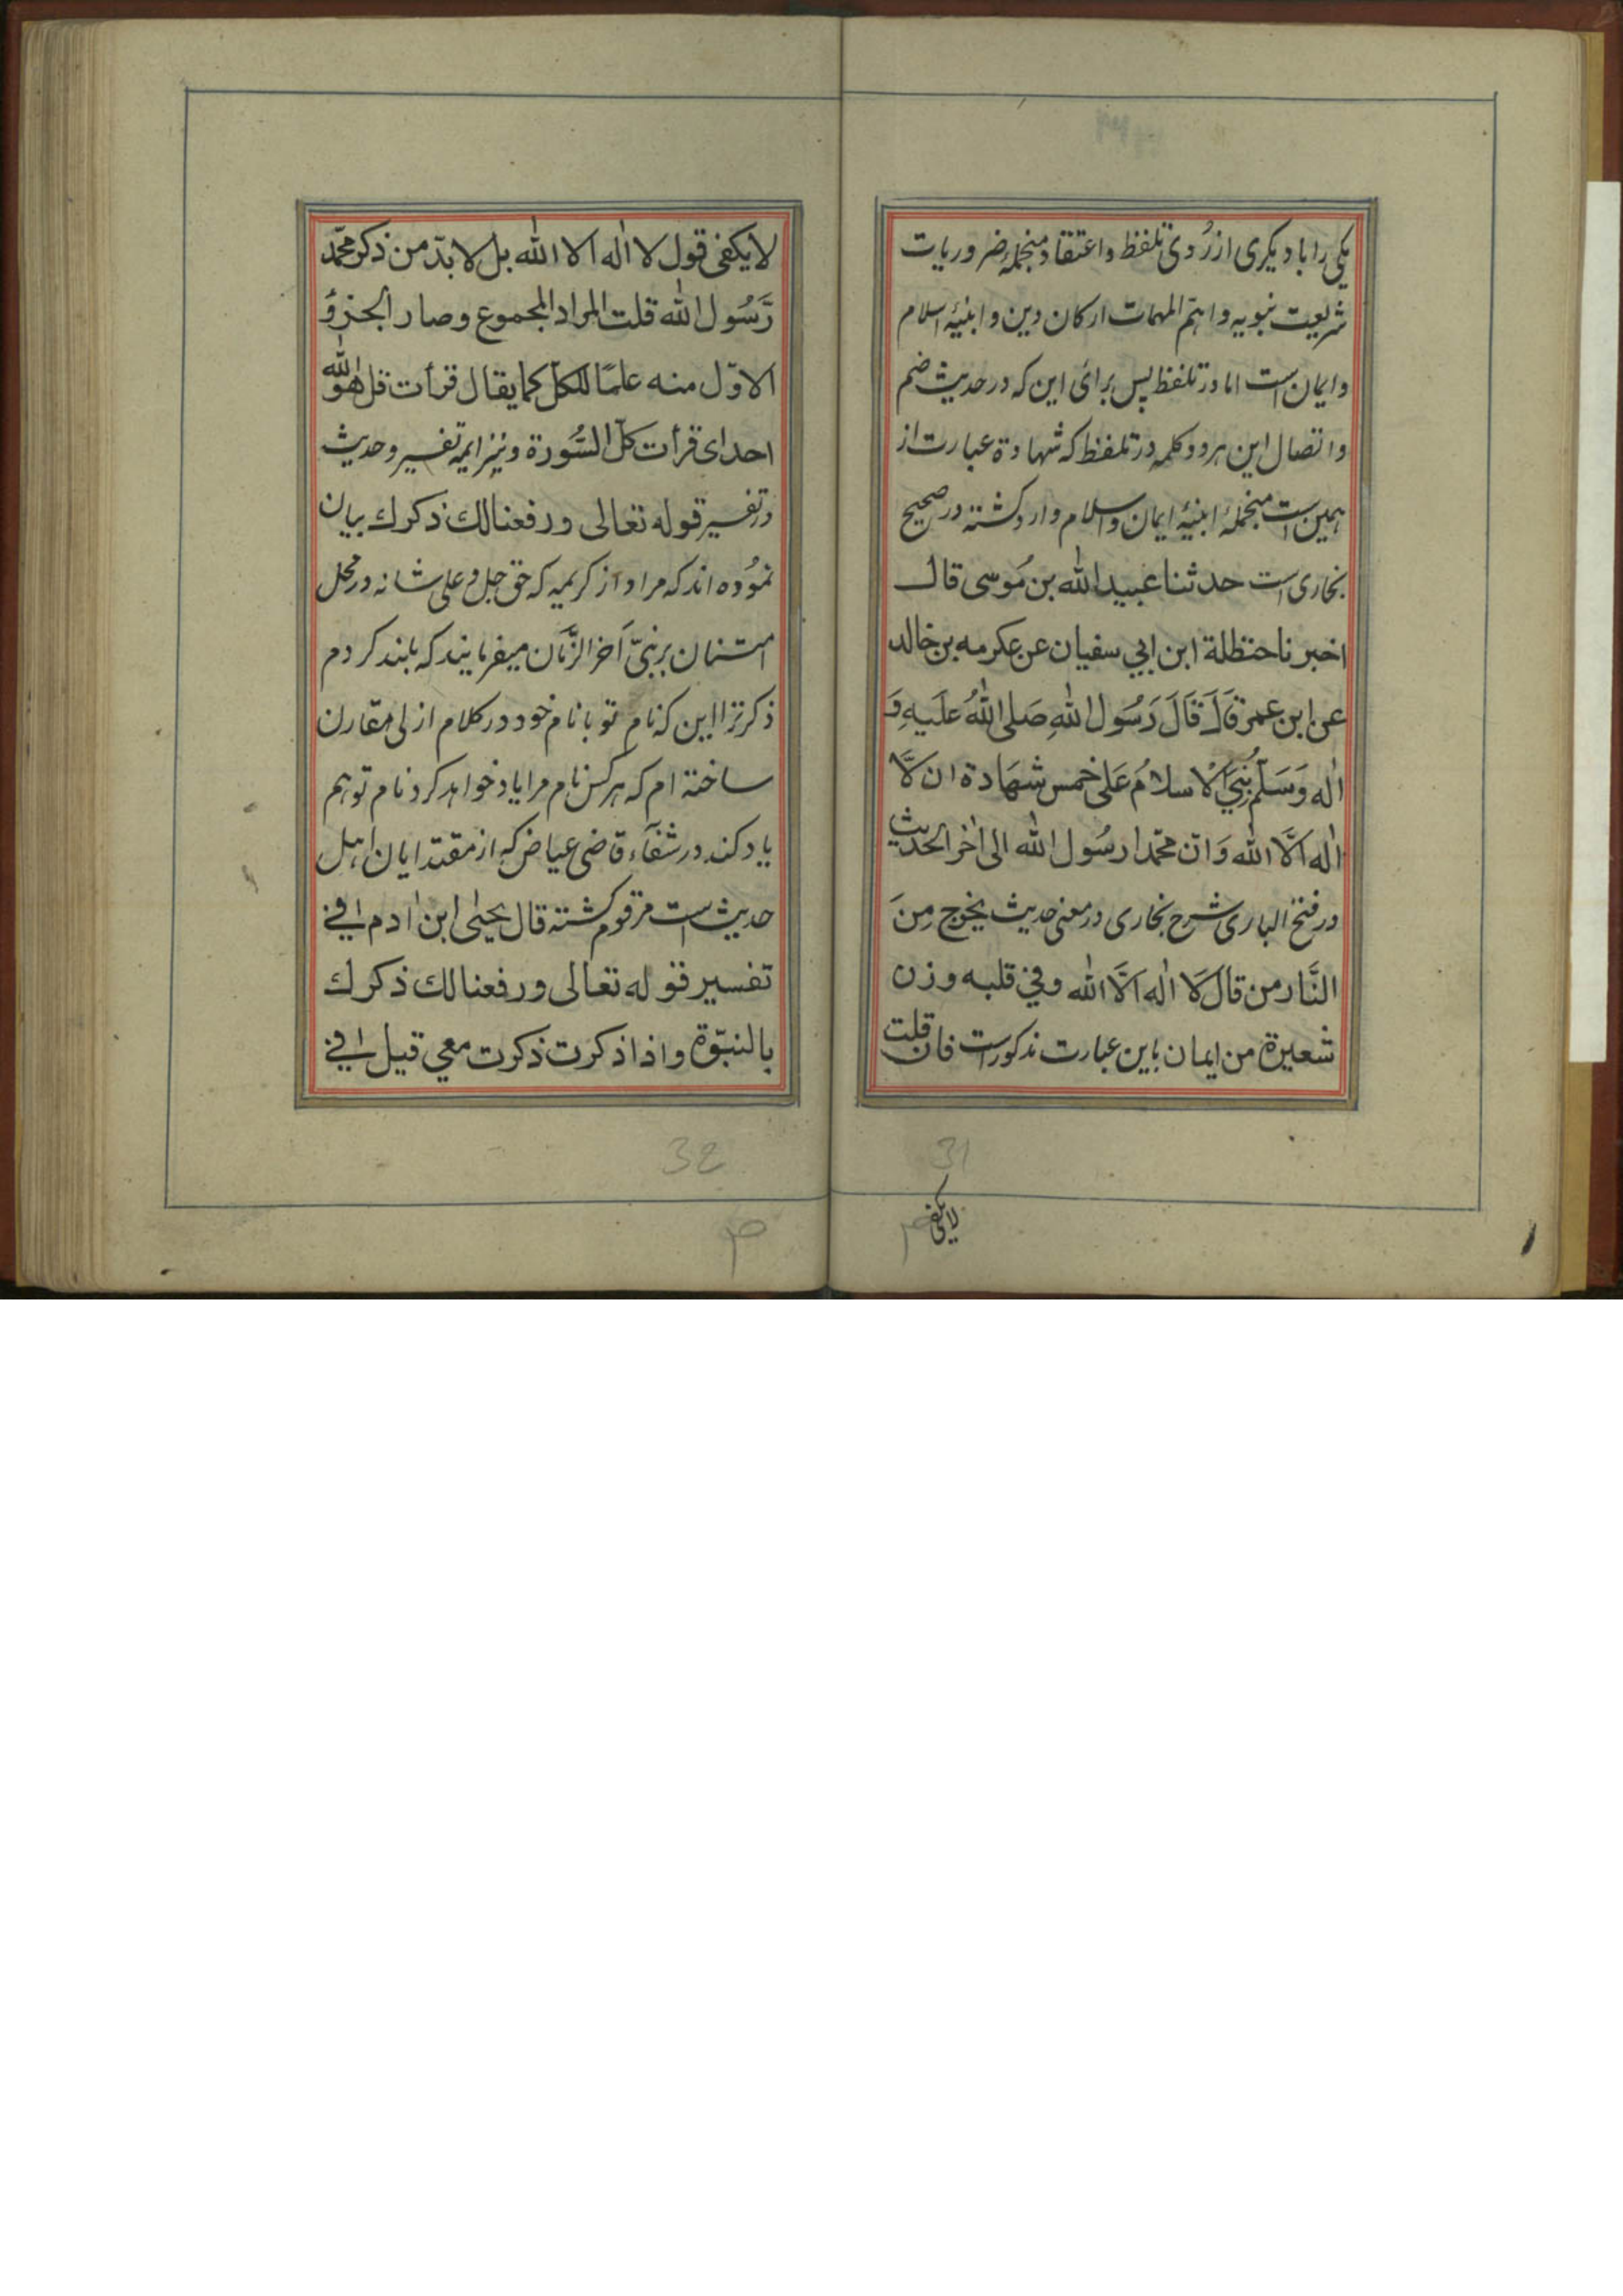 یکی را با دیگری از رُوی تلفظ و اعتقاد منجملۀ ضروریات
شریعت نبویه و اهم المهمات ارکان دین و ابنیۀ اسلام
و ایمان است اما در تلفظ پس برای این که در حدیث ضم
و اتصال این هر دو کلمه در تلفظ که شهادة عبارت از
همین است منجملۀ ابنیۀ ایمان و اسلام وارد گشته در صحیح
بخاری است حدثنا عبید الله بن مُوسی قال
اخبرنا حنظلة ابن ابي سفیان عن عکرمه بن خالد
عن ابن عمر قَالَ قَالَ رَسُول اللهِ صَلی اللهُ عَلَیهِ وَ
اٰله وَسَلّم بُنِيَ الْاسلامُ عَلی خمس شهَادة ان لَّا
اٰله الَّا الله وَ ان محمّدا رسُول الله الی اٰخر الحدیث
در فتح الباری شرح بخاری در معنی حدیث یخرج مِنَ
النَّار من قال لَا اٰله الَّا الله وفي قلبه وزن
شعیرة من ایمان باین عبارت مذکور است فان قلت
لا یکفی
31
لا یکفی قول لا اٰله الا الله بل لا بدّ من ذکر محمّد
رَّسُول الله قلت المراد المجموع و صار الجزؤ
الاوّل منه علمًا للکلّ کما یقال قرأت قل هو الله
احد ای قرأت کلّ السُّورة و نیز ایمۀ تفسیر و حدیث
در تفسیر قوله تعالی ورفعنا لك ذکرك بیان
نمُوده اند که مراد از کریمه که حق جل و علی شانه در محل
امتنان بر نبیّ اٰخر الزَّمَان میفرمایند که بلند کردم
ذکر ترا این که نام تو با نام خود در کلام ازلی مقارن
ساخته ام که هر کس نام مرا یاد خواهد کرد نام تو هم
یاد کند در شفآء قاضی عیاض که از مقتدایان اهل
حدیث است مرقوم گشته قال یحیٰی ابن اٰدم في
تفسیر قوله تعالی ورفعنا لك ذکرك
بالنبّوة و اذا ذکرت ذکرت معي قیل في
32